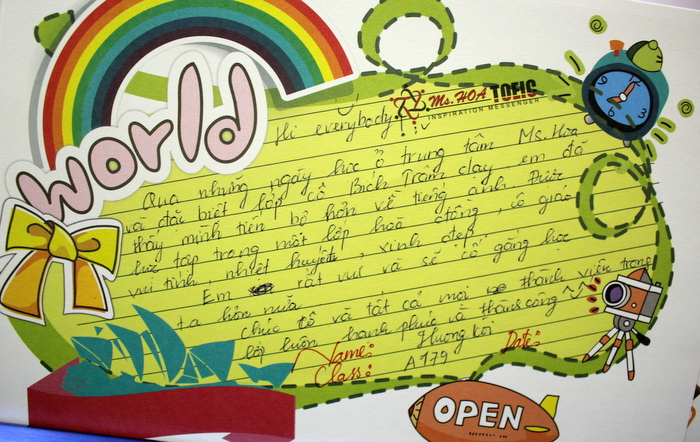 world
Ms. HOA TOEIC
INSPIRATION MESSENGER
Hi everybody
Qua những ngày học ở trung tâm Ms. Hoa
và đặc biệt lớp cô Bích Trâm dạy em đã
thấy mình tiến bộ hơn về tiếng anh. Được
học tập trong một lớp hòa đồng, cô giáo
vui tính, nhiệt huyết, xinh đẹp.
Em rất vui và sẽ cố gắng học
ta hơn nữa.
chúc cô và tất cả mọi thành viên trong
lớp luôn hạnh phúc và thành công ^^
Name: Hương
Date:
Class: A179
OPEN